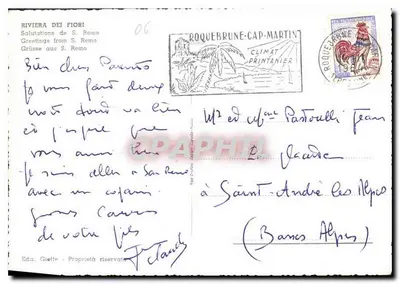 RIVIERA DEI FIORI
Salutations de S. Remo
Greetings from S. Remo
Grüsse aus S. Remo
06
ROQUEBRUNE-CAP-MARTIN
CLIMAT
PRINTANIER
Bien chers Parents
Je vous fait deux
mots tout va bien
et j'espère que
vous aussi
Je suis allé a San Remo
avec un copain
gros
de votre fils
Jean Claude
Mr et Mme Pastorelli Jean
à Saint-André les Alpes
(Basses Alpes)
Edo. Gielle - Proprietà riservata